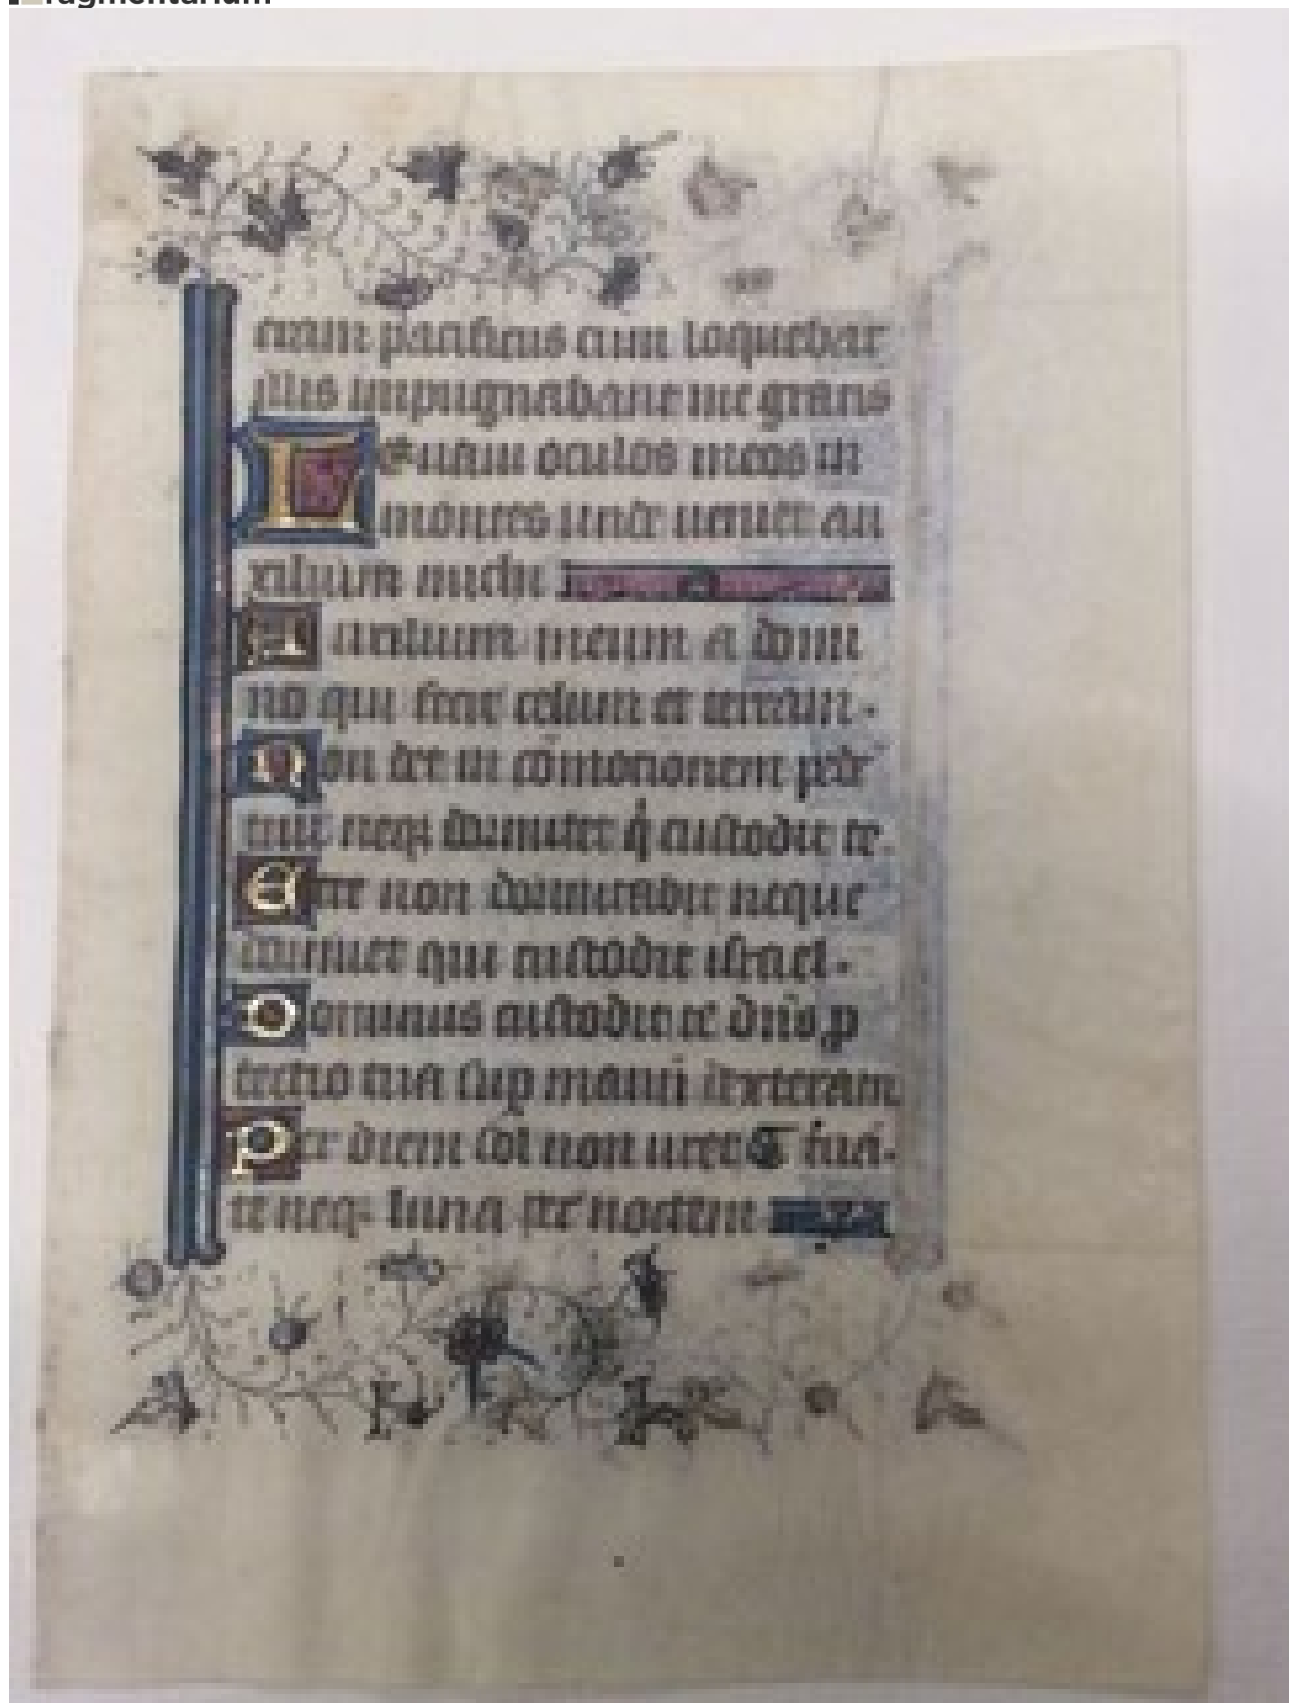 ragmentarium
eram pacificus cum loquebar
illis impugnabant me gratis
Leuaui oculos meos in
montes unde ueniet au
xilium michi
Auxilium meum a domi
no qui fecit celum et terram.
Non det in cōmotionem pedē
tuū neqȝ dormitet q̇ custodit te.
Ecce non dormitabit neque
dormiet qui custodit israel.
Dominus custodit te dn̄s ꝓ
tectio tua sup manū dexteram
Per diem sol non uret te
te neqȝ luna per noctem